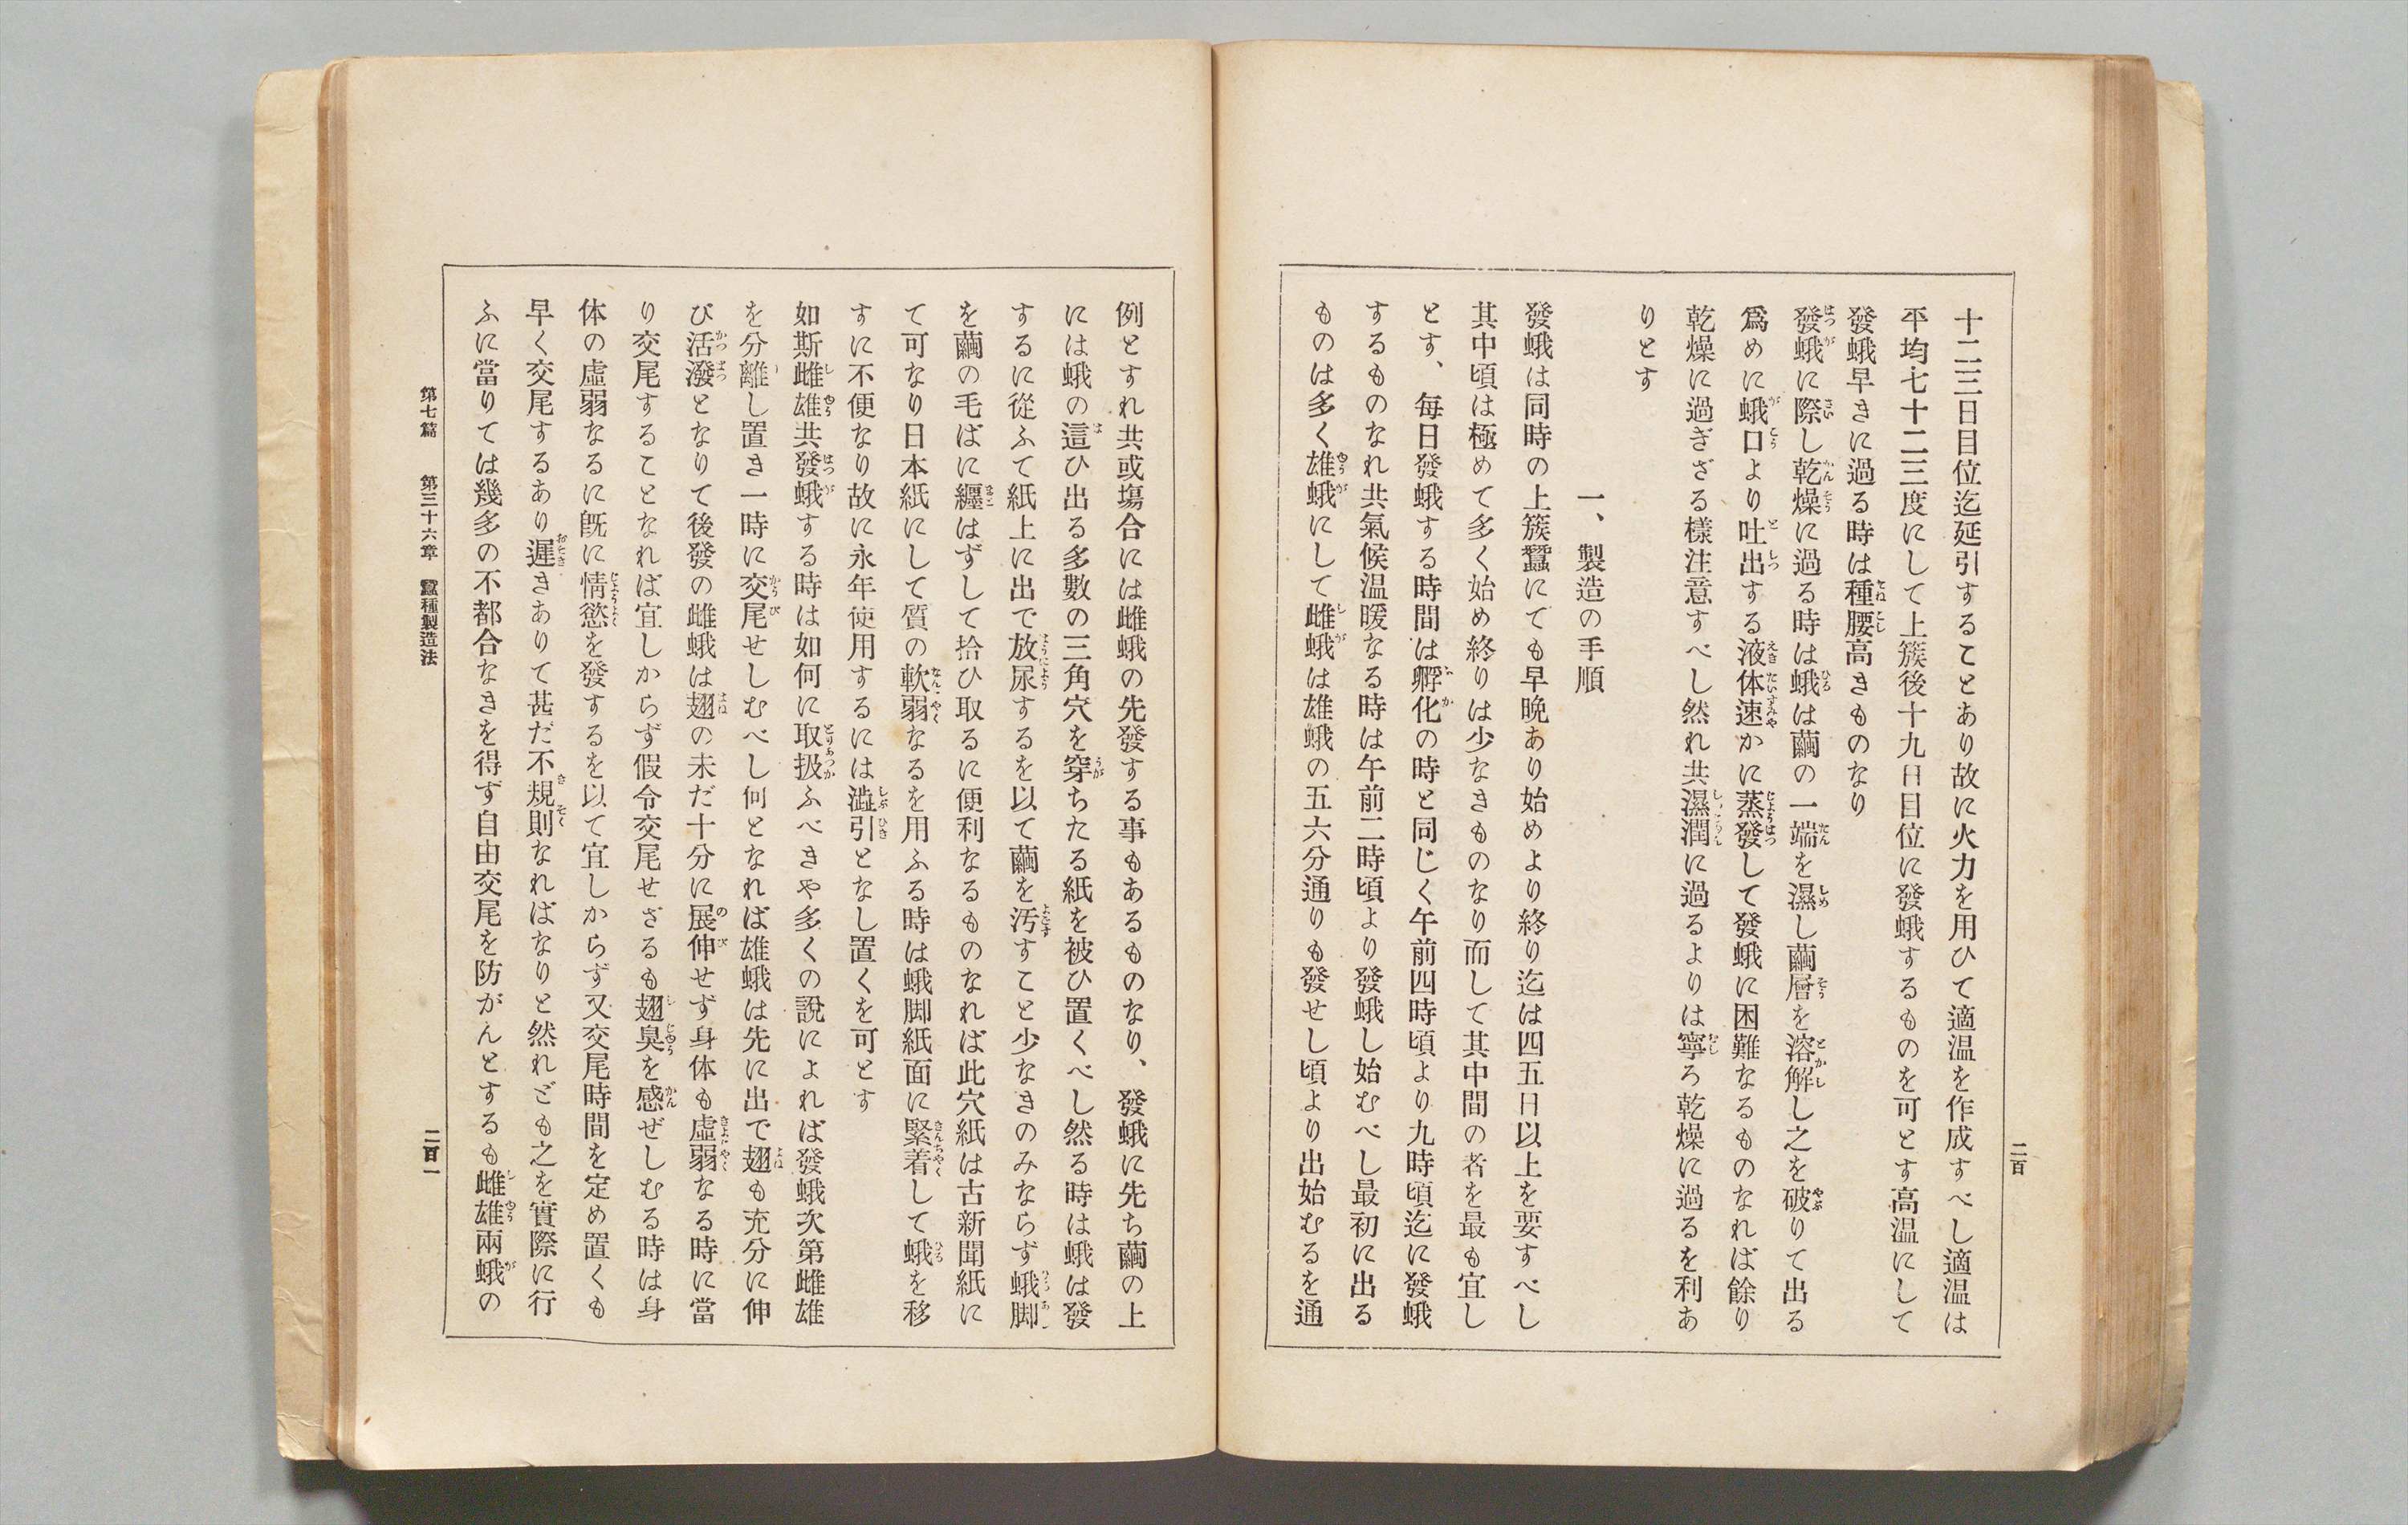 十二三日目位迄延引することあり故に火力を用ひて適温を作成すべし適温は
平均七十二三度にして上簇後十九日目位に發蛾するものを可とす高温にして
發蛾早きに過る時は種腰高きものなり
發蛾に際し乾燥に過る時は蛾は繭の一端を濕し繭層を溶解し之を破りて出る
爲めに蛾口より吐出する液体速かに蒸發して發蛾に困難なるものなれば餘り
乾燥に過ぎざる樣注意すべし然れ共濕潤に過るよりは寧ろ乾燥に過るを利あ
りとす
一、製造の手順
發蛾は同時の上簇蠶にても早晩あり始めより終り迄は四五日以上を要すべし
其中頃は極めて多く始め終りは少なきものなり而して其中間の者を最も宜し
とす、每日發蛾する時間は孵化の時と同じく午前四時頃より九時頃迄に發蛾
するものなれ共氣候温暖なる時は午前二時頃より發蛾し始むべし最初に出る
ものは多く雄蛾にして雌蛾は雄蛾の五六分通りも發せし頃より出始むるを通
二百
例とすれ共或塲合には雌蛾の先發する事もあるものなり、發蛾に先ち繭の上
には蛾の這ひ出る多數の三角穴を穿ちたる紙を被ひ置くべし然る時は蛾は發
するに從ふて紙上に出で放尿するを以て繭を汚すこと少なきのみならず蛾脚
を繭の毛ばに纒はずして拾ひ取るに便利なるものなれば此穴紙は古新聞紙に
て可なり日本紙にして質の軟弱なるを用ふる時は蛾脚紙面に緊着して蛾を移
すに不便なり故に永年使用するには澁引となし置くを可とす
如斯雌雄共發蛾する時は如何に取扱ふべきや多くの說によれば發蛾次第雌雄
を分離し置き一時に交尾せしむべし何となれば雄蛾は先に出で翅も充分に伸
び活潑となりて後發の雌蛾は翅の未だ十分に展伸せず身体も虛弱なる時に當
り交尾することなれば宜しからず假令交尾せざるも翅臭を感ぜしむる時は身
体の虛弱なるに旣に情慾を發するを以て宜しからず又交尾時間を定め置くも
早く交尾するあり遲きありて甚だ不規則なればなりと然れども之を實際に行
ふに當りては幾多の不都合なきを得ず自由交尾を防がんとするも雌雄兩蛾の
第七篇　第三十六章　蠶種製造法
二百一